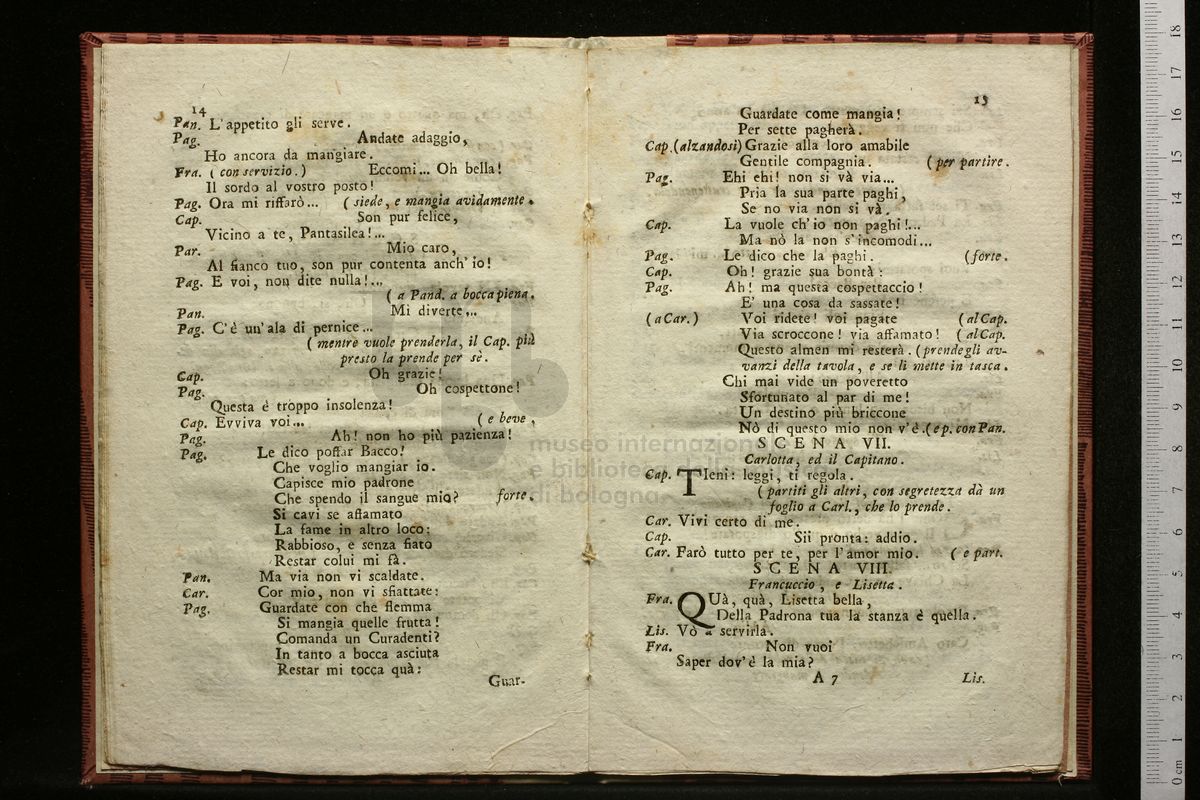 14
Pan. L'appetito gli serve.
Pag. Andate adaggio,
Ho ancora da mangiare.
Fra. (con servizio.) Eccomi... Oh bella!
Il sordo al vostro posto!
Pag. Ora mi riffarò... (siede, e mangia avidamente.
Cap. Son pur felice,
Vicino a te, Pantasilea!...
Par. Mio caro,
Al fianco tuo, son pur contenta anch'io!
Pag. E voi, non dite nulla!...
(a Pand. a bocca piena.
Pan. Mi diverte...
Pag. C'è un'ala di pernice...
(mentre vuole prenderla, il Cap. più
presto la prende per sè.
Cap. Oh grazie!
Pag. Oh cospettone!
Questa è troppo insolenza!
Cap. Evviva voi... (e beve,
Pag. Ah! non ho più pazienza!
Pag. Le dico poffar Bacco!
Che voglio mangiar io.
Capisce mio padrone
Che spendo il sangue mio? forte.
Si cavi se affamato
La fame in altro loco:
Rabbioso, e senza fiato
Restar colui mi fà.
Pan. Ma via non vi scaldate.
Car. Cor mio, non vi sfiattate:
Pag. Guardate con che flemma
Si mangia quelle frutta!
Comanda un Curadenti?
In tanto a bocca asciuta
Restar mi tocca quà:
Guar-
15
Guardate come mangia!
Per sette pagherà.
Cap. (alzandosi) Grazie alla loro amabile
Gentile compagnia. (per partire.
Pag. Ehi ehi! non si và via...
Pria la sua parte paghi,
Se no via non si và.
Cap. La vuole ch'io non paghi!...
Ma nò la non s'incomodi...
Pag. Le dico che la paghi. (forte.
Cap. Oh! grazie sua bontà:
Pag. Ah! ma questa cospettaccio!
E' una cosa da sassate!
(a Car.) Voi ridete! voi pagate (al Cap.
Via scroccone! via affamato! (al Cap.
Questo almen mi resterà. (prende gli av-
vanzi della tavola, e se li mette in tasca.
Chi mai vide un poveretto
Sfortunato al par di me!
Un destino più briccone
Nò di questo mio non v'è. (e p. con Pan.
SCENA VII.
Carlotta, ed il Capitano.
Cap. TIeni: leggi, ti regola.
(partiti gli altri, con segretezza dà un
foglio a Carl., che lo prende.
Car. Vivi certo di me.
Cap. Sii pronta: addio.
Car. Farò tutto per te, per l'amor mio. (e part.
SCENA VIII.
Francuccio, e Lisetta.
Fra. QUà, quà, Lisetta bella,
Della Padrona tua la stanza è quella.
Lis. Vò a servirla.
Fra. Non vuoi
Saper dov'è la mia?
A 7 Lis.
museo internazion
e bibliote
di bologna
0 cm 1 2 3 4 5 6 7 8 9 10 11 12 13 14 15 16 17 18